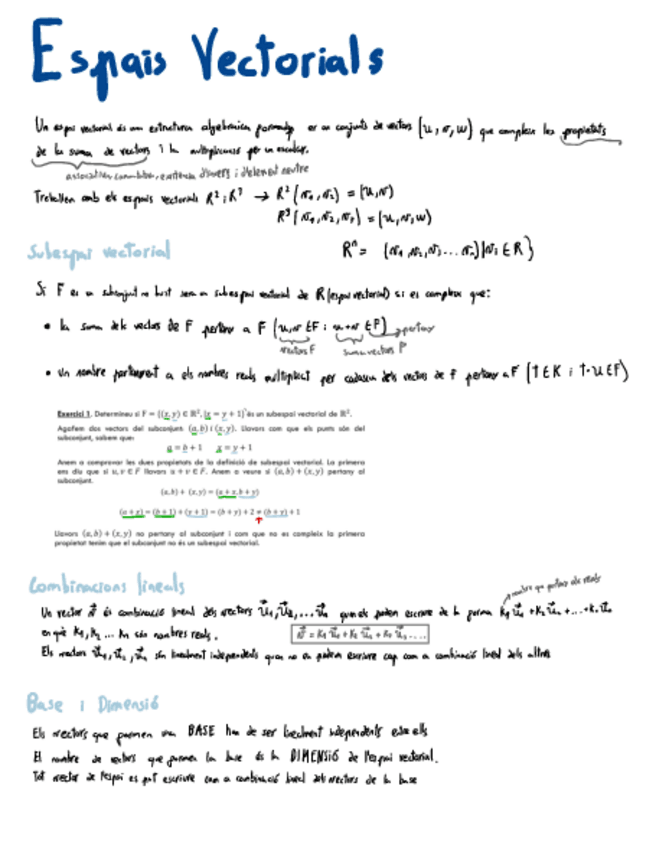 Espais Vectorials
Un espai vectorial és una estructura algebraica formada per un conjunts de vectors (u, v, w) que compleix les propietats
de la suma de vectors i la multiplicacio per un escalar.
associativa, conmutativa, existencia d'invers i d'element neutre
Treballem amb els espais vectorials R² i R³ → R² (v₁, v₂) = (u, v)
R³ (v₁, v₂, v₃) = (u, v, w)
Subespai vectorial
Rⁿ = {v₁, v₂, v₃ ... vₙ) | vᵢ ∈ R}
Si F es un subconjunt no buit sera un subespai vectorial de R (espai vectorial) si es compleix que:
• la suma dels vectors de F pertany a F (u, v ∈ F ; u+v ∈ F) pertany
vectors F suma vectors F
• un nombre pertanyent a els nombres reals multiplicat per cadascun dels vectors de F pertany a F (t ∈ K i t·u ∈ F)
Exercici 1. Determineu si F = {(x, y) ∈ ℝ², |x = y + 1} és un subespai vectorial de ℝ².
Agafem dos vectors del subconjunt (a, b) i (x, y). Llavors com que els punts són del
subconjunt, sabem que:
a = b + 1 x = y + 1
Anem a comprovar les dues propietats de la definició de subespai vectorial. La primera
ens diu que si u, v ∈ F llavors u + v ∈ F. Anem a veure si (a, b) + (x, y) pertany al
subconjunt.
(a, b) + (x, y) = (a + x, b + y)
(a + x) = (b + 1) + (y + 1) = (b + y) + 2 ≠ (b + y) + 1
Llavors (a, b) + (x, y) no pertany al subconjunt i com que no es compleix la primera
propietat tenim que el subconjunt no és un subespai vectorial.
Combinacions lineals
nombre que pertany als reals
Un vector v⃗ és combinació lineal dels vectors u⃗₁, u⃗₂, ... u⃗ₙ quan els podem escriure de la forma K₁u⃗₁ + K₂u⃗₂ + ... + Kₙu⃗ₙ
en què K₁, K₂ ... Kn són nombres reals. v⃗ = K₁u⃗₁ + K₂u⃗₂ + K₃u⃗₃ ....
Els vectors u⃗₁, u⃗₂, u⃗₃ són linealment independents quan no en podem escriure cap com a combinació lineal dels altres
Base i Dimensió
Els vectors que formen una BASE han de ser linealment independents entre ells
El nombre de vectors que formen la base és la DIMENSIÓ de l'espai vectorial.
Tot vector de l'espai es pot escriure com a combinació lineal dels vectors de la base